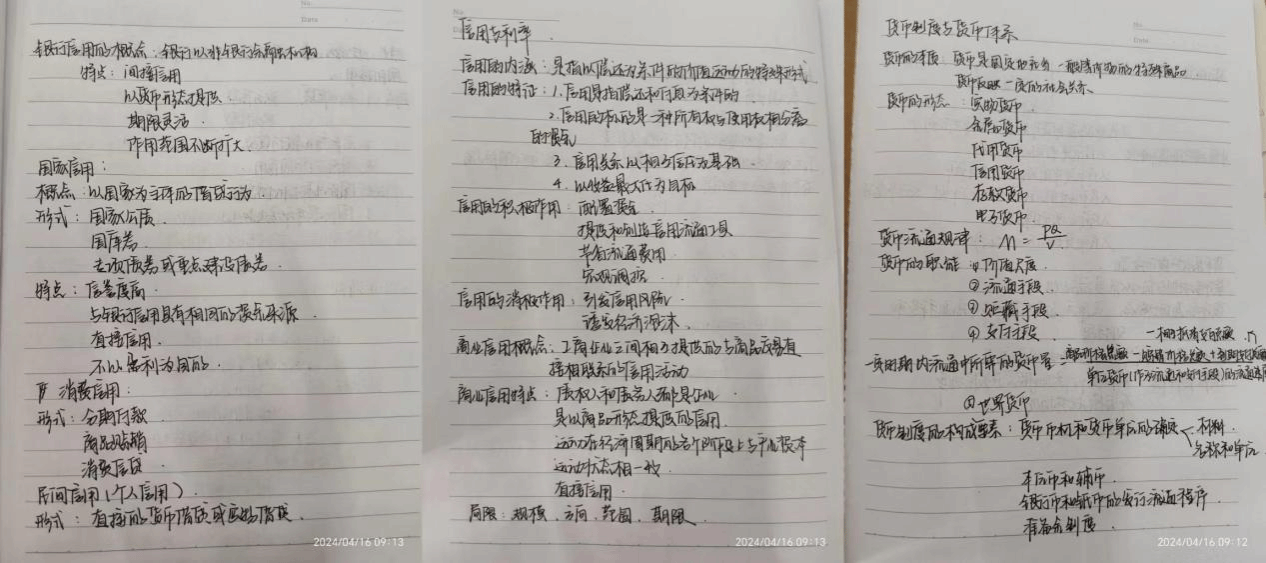 No.
Date
银行信用的概念：银行以非银行金融机构
特点：间接信用
以货币形态提供
期限灵活
作用范围不断扩大
国家信用：
概念：以国家为主体的借贷行为.
形式：国家公债.
国库券.
专项债券或重点建设债券.
特点：信誉度高.
与银行信用具有相同的资金来源
直接信用.
不以盈利为目的.
消费信用：
形式：分期付款
商品赊销
消费信贷.
民间信用（个人信用）.
形式：直接的货币借贷或实物借贷.
2024/04/16 09:13
信用与利率.
信用的内涵：是指以偿还为条件的价值运动的特殊形式
信用的特征：1.信用是指偿还和付息为条件的.
2.信用的标的是一种所有权与使用权相分离
的资金
3.信用关系以相互信任为基础.
4.以收益最大化为目标
信用的积极作用：配置资金.
提供和创造信用流通工具
节省流通费用.
宏观调控.
信用的消极作用：引发信用风险.
诱发经济泡沫.
商业信用概念：工商企业之间相互提供的与商品交易直
接相联系的信用活动
商业信用特点：债权人和债务人都是企业
是以商品形态提供的信用.
运动在经济周期的各个阶段上与产业资本
运动状态相一致.
直接信用.
局限：规模、方向、范围、期限.
2024/04/16 09:13
货币制度与货币体系
货币的本质：货币是固定地充当一般等价物的特殊商品
货币反映一定的社会关系.
货币的形态：实物货币
金属货币
代用货币
信用货币
存款货币
电子货币.
货币流通规律：M = PQ/V
货币的职能：①价值尺度.
②流通手段.
③贮藏手段.
④支付手段.
一定时期内流通中所需的货币量 =
⑤世界货币
货币制度的构成要素：货币币材和货币单位的确定
材料.
名称和单位.
本位币和辅币.
银行币和纸币的发行流通程序.
准备金制度.
2024/04/16 09:12